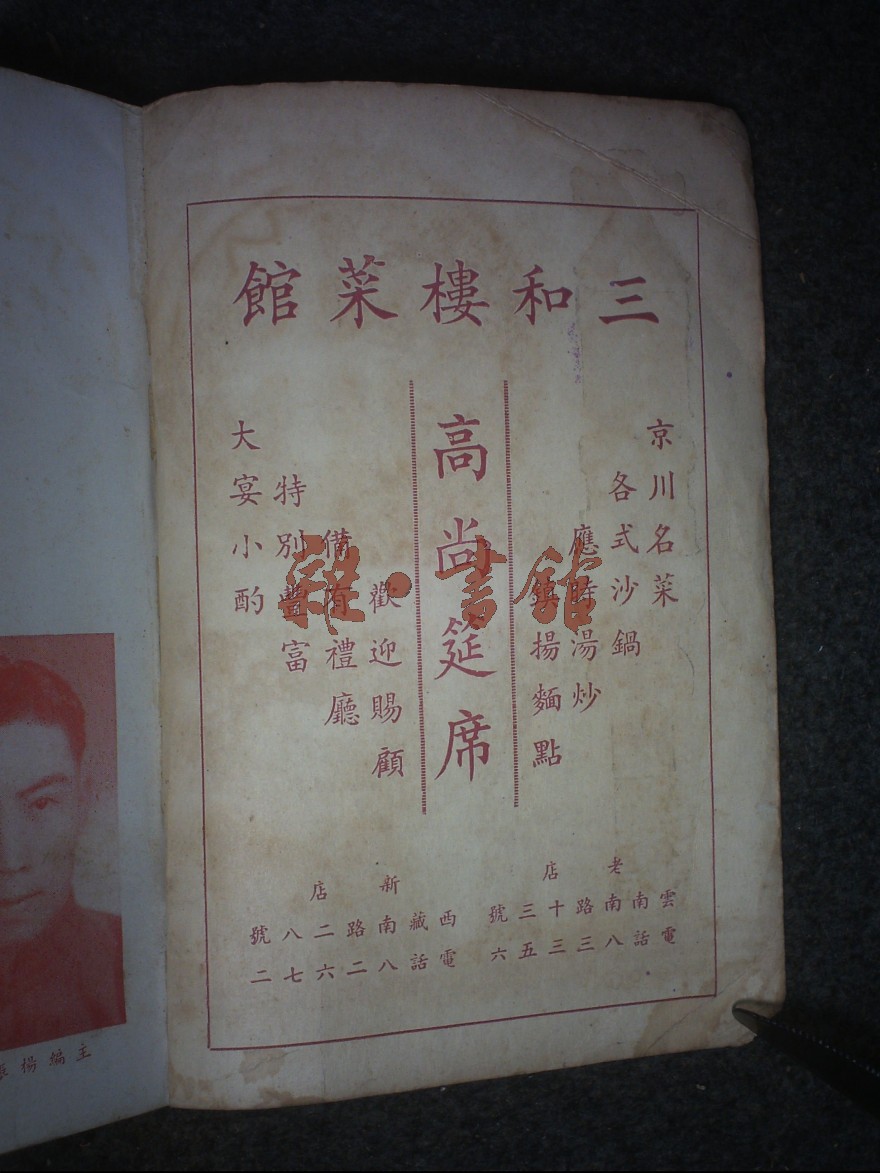 三和樓菜館
京川名菜
各式沙鍋
應時湯炒
鎮揚麵點
高尚筵席
歡迎賜顧
備有禮廳
特別豐富
大宴小酌
老店
雲南南路十三號
電話八三三五六
新店
西藏南路二八號
電話八二六七二
雜·書館
主編楊